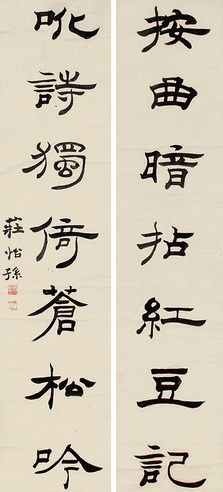 按曲暗拈紅豆記
詩獨倚蒼松吟
莊怡孫